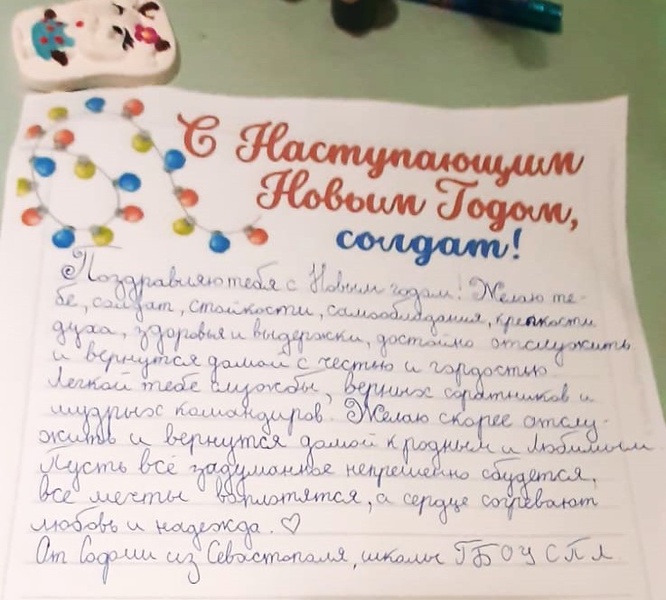 С Наступающим
Новым Годом,
солдат!
Поздравляю тебя с Новым годом! Желаю те-
бе, солдат, стойкости, самообладания, крепкости
духа, здоровья и выдержки, достойно отслужить
и вернутся домой с честью и гордостью.
Легкой тебе службы, верных соратников и
мудрых командиров. Желаю скорее отслу-
жить и вернутся домой к родным и любимым.
Пусть всё задуманное непременно сбудется,
все мечты воплотятся, а сердце согревают
любовь и надежда. ♡
От Софии из Севастополя, школы ГБОУ СПЛ